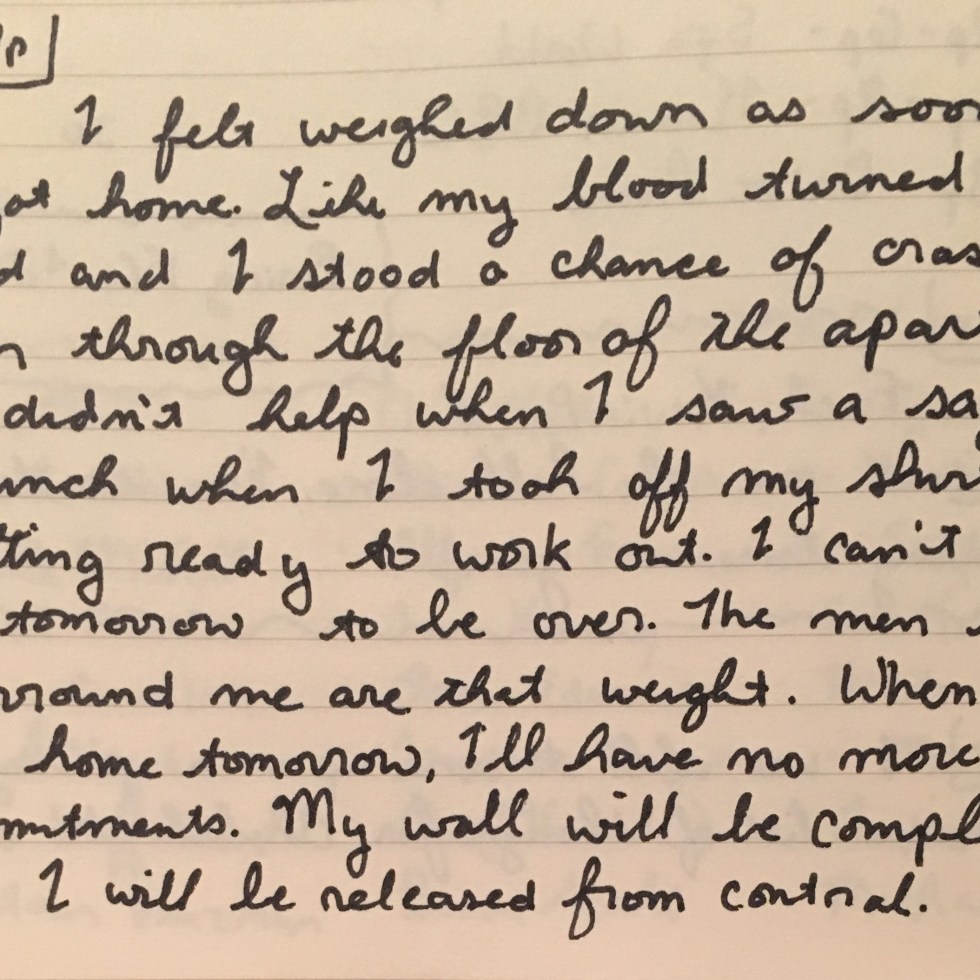 I felt weighed down as soon
got home. Like my blood turned
d and I stood a chance of cras
n through the floor of the apar
didn't help when I saw a sa
unch when I took off my shir
tting ready to work out. I can't
tomorrow to be over. The men
rround me are that weight. When
home tomorrow, I'll have no more
mitments. My wall will be compl
I will be released from control.